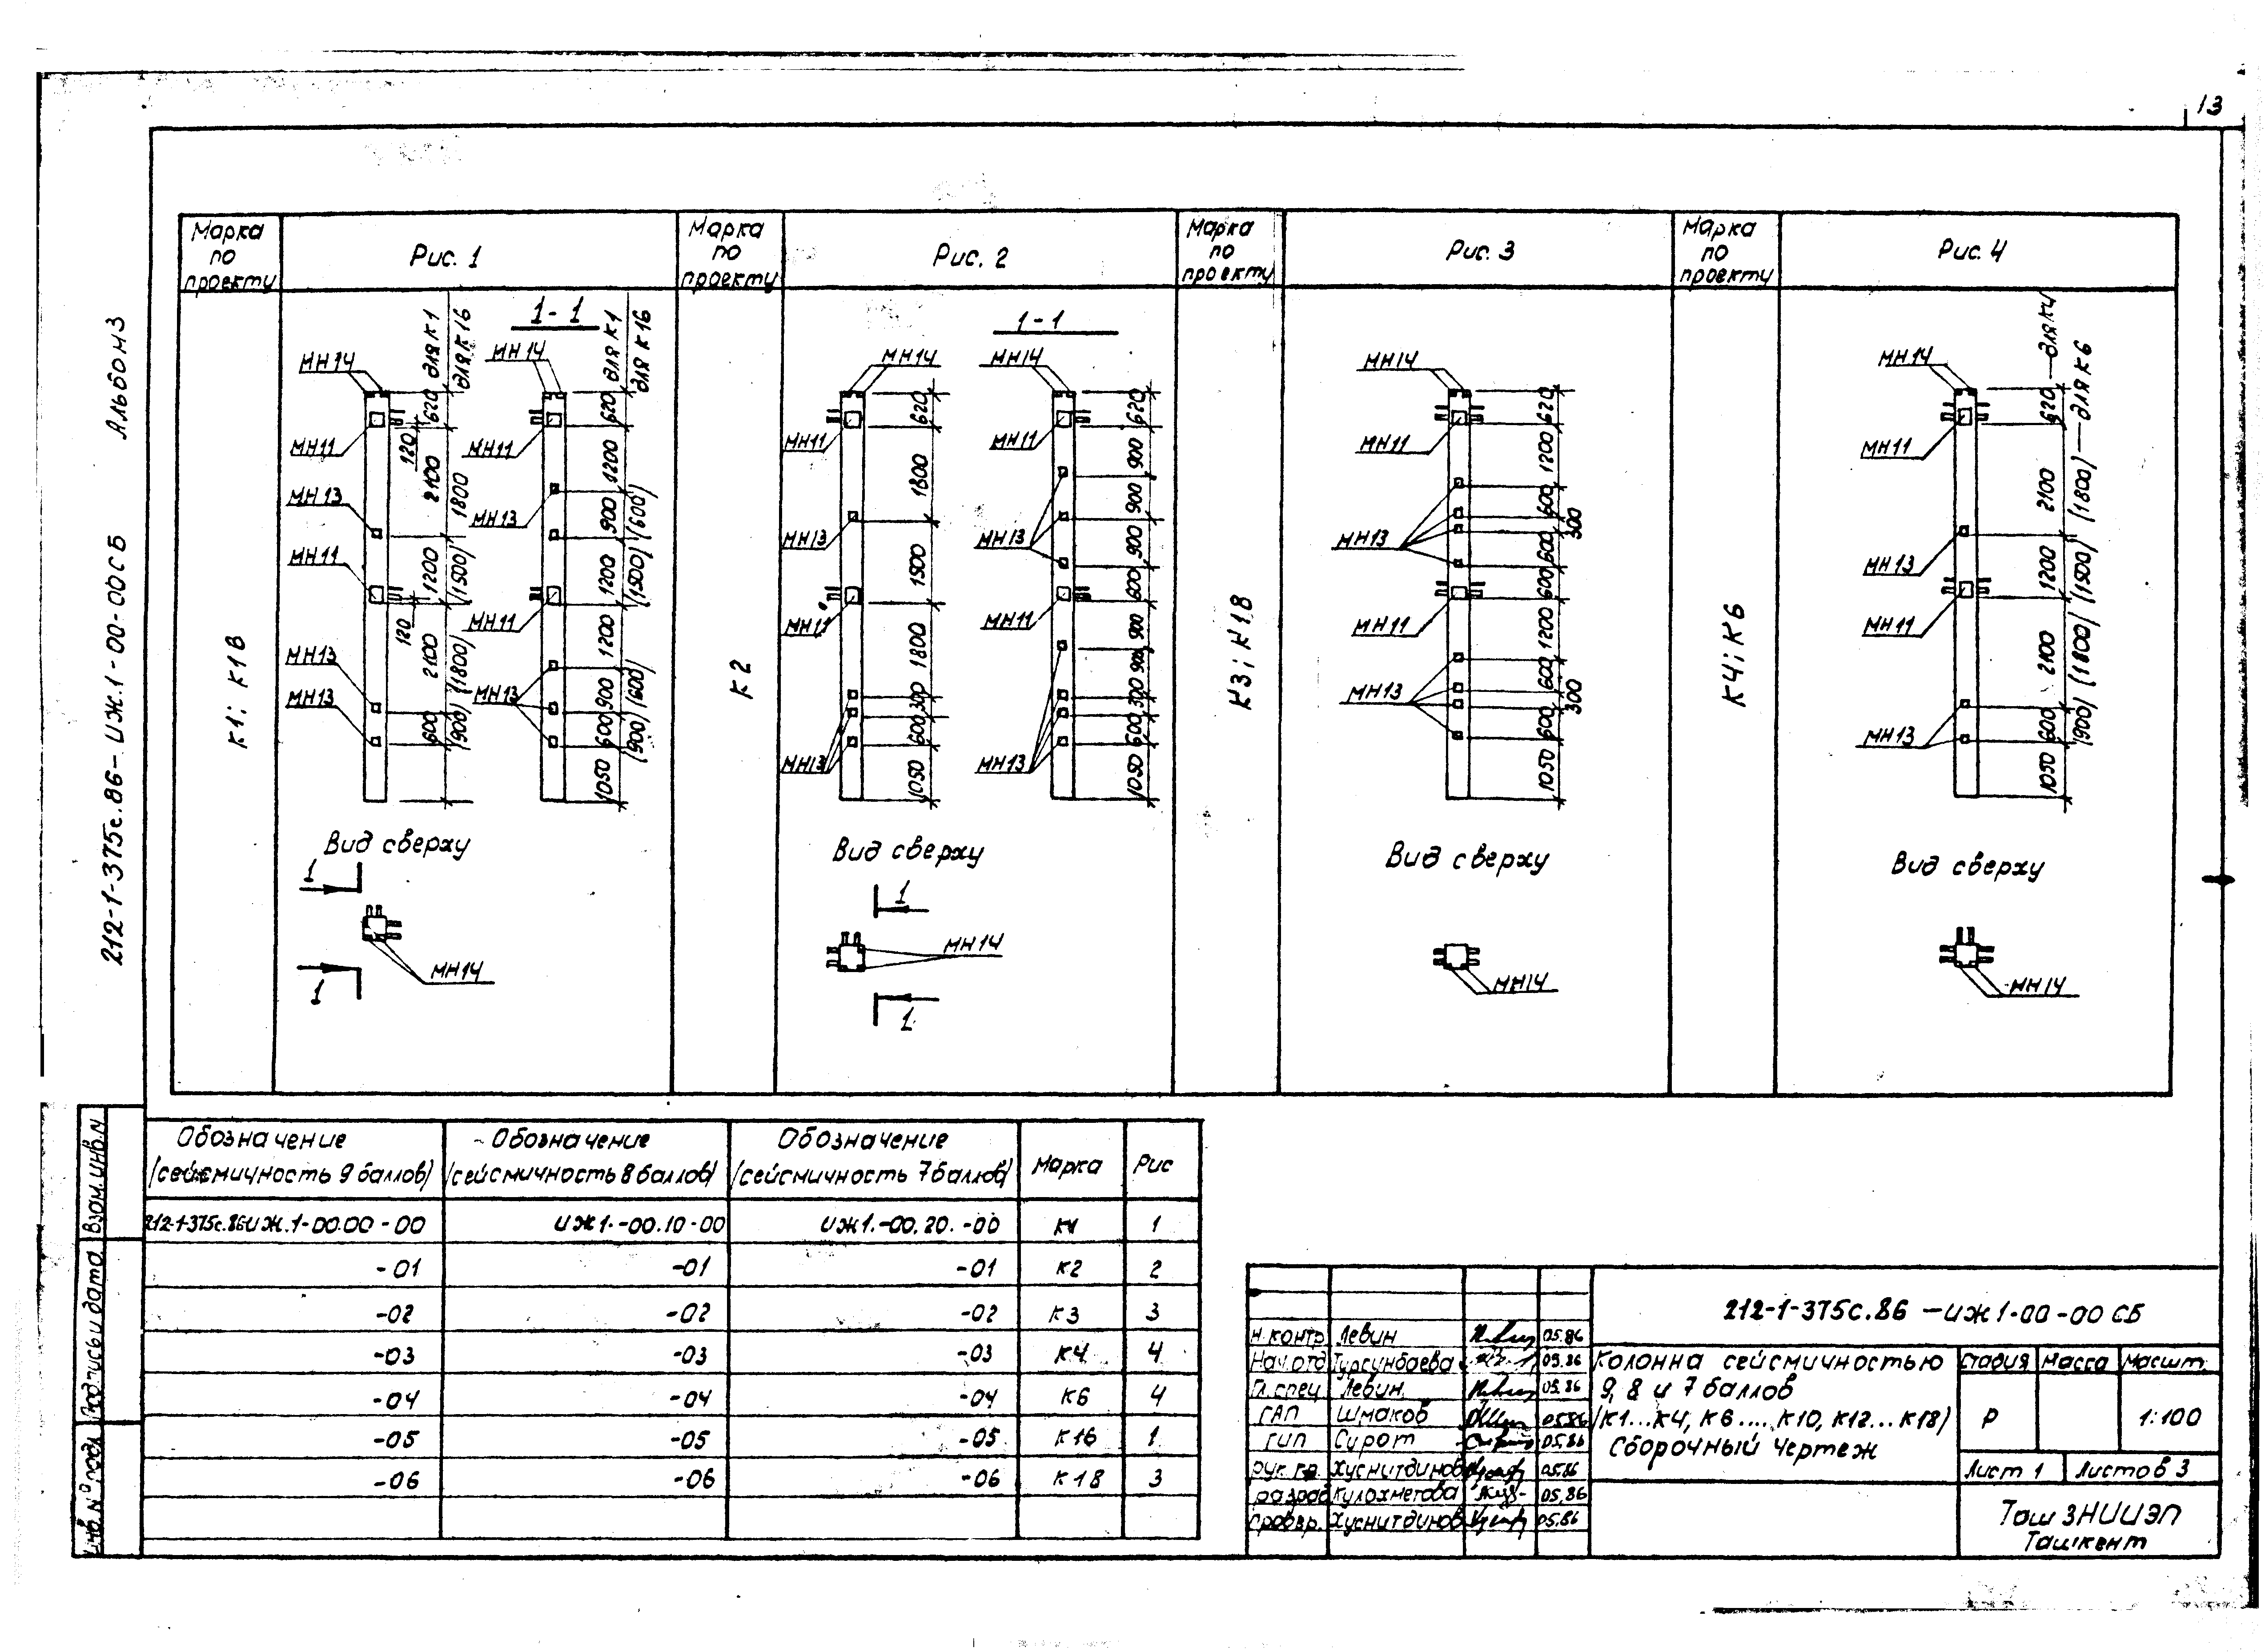 13
Альбом 3
212-1-375с.86-ИЖ.1-00-00СБ
Марка по проекту
Рис. 1
Марка по проекту
Рис. 2
Марка по проекту
Рис. 3
Марка по проекту
Рис. 4
К1; К1В
1-1
МН14
МН11
МН13
МН11
МН13
МН13
620 для К1
для К16
120
2100
1800
1200
(1500)
120
2100
(1800)
600
(900)
МН14
МН11
МН13
МН11
МН13
620 для К1
для К16
1200
900
(600)
1200
(1500)
1200
900
(600)
600
(900)
1050
Вид сверху
1
1
МН14
К2
1-1
МН14
МН11
МН13
МН11
МН13
620
1800
1500
1800
300
600
1050
МН14
МН11
МН13
МН11
МН13
620
900
900
900
600
900
900
300
600
1050
Вид сверху
1
1
МН14
К3; К18
МН14
МН11
МН13
МН11
МН13
620
1200
600
300
600
600
1200
600
300
600
1050
Вид сверху
МН14
К4; К6
МН14
МН11
МН13
МН11
МН13
620 — для К4
2100
(1800) — для К6
1200
(1500)
2100
(1800)
600
(900)
1050
Вид сверху
МН14
Обозначение (сейсмичность 9 баллов) Обозначение (сейсмичность 8 баллов) Обозначение (сейсмичность 7 баллов) Марка Рис
212-1-375с.86ИЖ.1-00.00-00 ИЖ1.-00.10-00 ИЖ1.-00.20.-00 К1 1
-01 -01 -01 К2 2
-02 -02 -02 К3 3
-03 -03 -03 К4 4
-04 -04 -04 К6 4
-05 -05 -05 К16 1
-06 -06 -06 К18 3
Взам. инв. N
Подпись и дата
Инв. N° подл.
212-1-375с.86-ИЖ1-00-00 СБ
Н.контр. Левин 05.86
Нач.отд. Турсунбаева 05.86
Гл.спец. Левин 05.86
ГАП Шмаков 05.86
ГИП Сирот 05.86
Рук.гр. Хуснитдинов 05.86
разраб Кулахметова 05.86
провер. Хуснитдинов 05.86
Колонна сейсмичностью
9, 8 и 7 баллов
(К1...К4, К6.... К10, К12...К18)
Сборочный чертеж
Стадия Масса Масшт.
Р 1:100
Лист 1 Листов 3
ТашЗНИИЭП
Ташкент